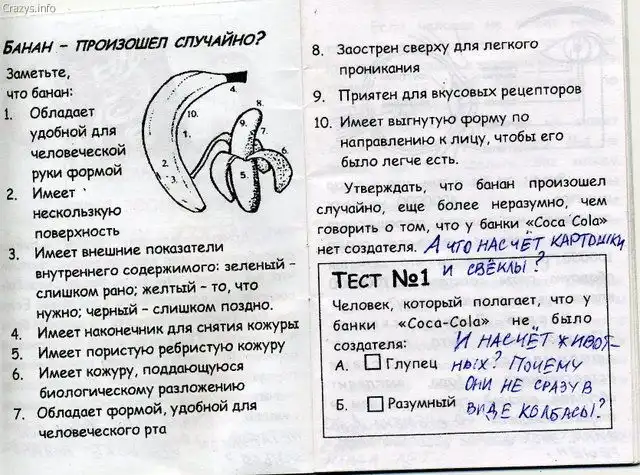 Crazys.info
БАНАН – ПРОИЗОШЕЛ СЛУЧАЙНО?
Заметьте,
что банан:
1. Обладает
удобной для
человеческой
руки формой
2. Имеет
нескользкую
поверхность
3. Имеет внешние показатели
внутреннего содержимого: зеленый –
слишком рано; желтый – то, что
нужно; черный – слишком поздно.
4. Имеет наконечник для снятия кожуры
5. Имеет пористую ребристую кожуру
6. Имеет кожуру, поддающуюся
биологическому разложению
7. Обладает формой, удобной для
человеческого рта
4.
10.
1.
2.
3.
8.
9.
7.
6.
5.
8. Заострен сверху для легкого
проникания
9. Приятен для вкусовых рецепторов
10. Имеет выгнутую форму по
направлению к лицу, чтобы его
было легче есть.
Утверждать, что банан произошел
случайно, еще более неразумно, чем
говорить о том, что у банки «Coca Cola»
нет создателя. А ЧТО НАСЧЁТ КАРТОШКИ
И СВЁКЛЫ?
ТЕСТ №1
Человек, который полагает, что у
банки «Coca-Cola» не было
создателя:
А. Глупец
Б. Разумный
И НАСЧЁТ ЖИВОТ-
НЫХ? ПОЧЕМУ
ОНИ НЕ СРАЗУ В
ВИДЕ КОЛБАСЫ?